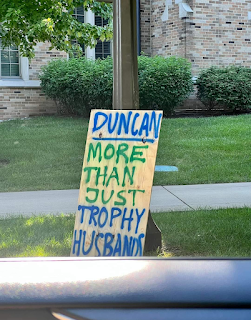 DUNCAN
MORE
THAN
JUST
TROPHY
HUSBANDS